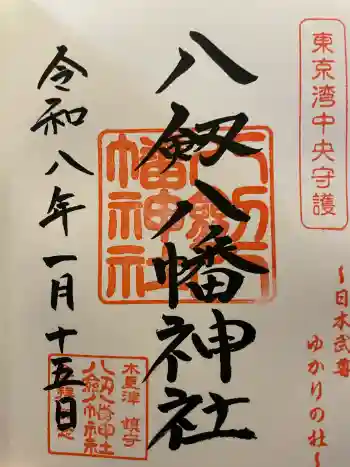 東京湾中央守護
〜日本武尊
ゆかりの社〜
八剱八幡神社
八剱八幡神社
令和八年一月十五日
木更津 鎮守
八剱八幡神社